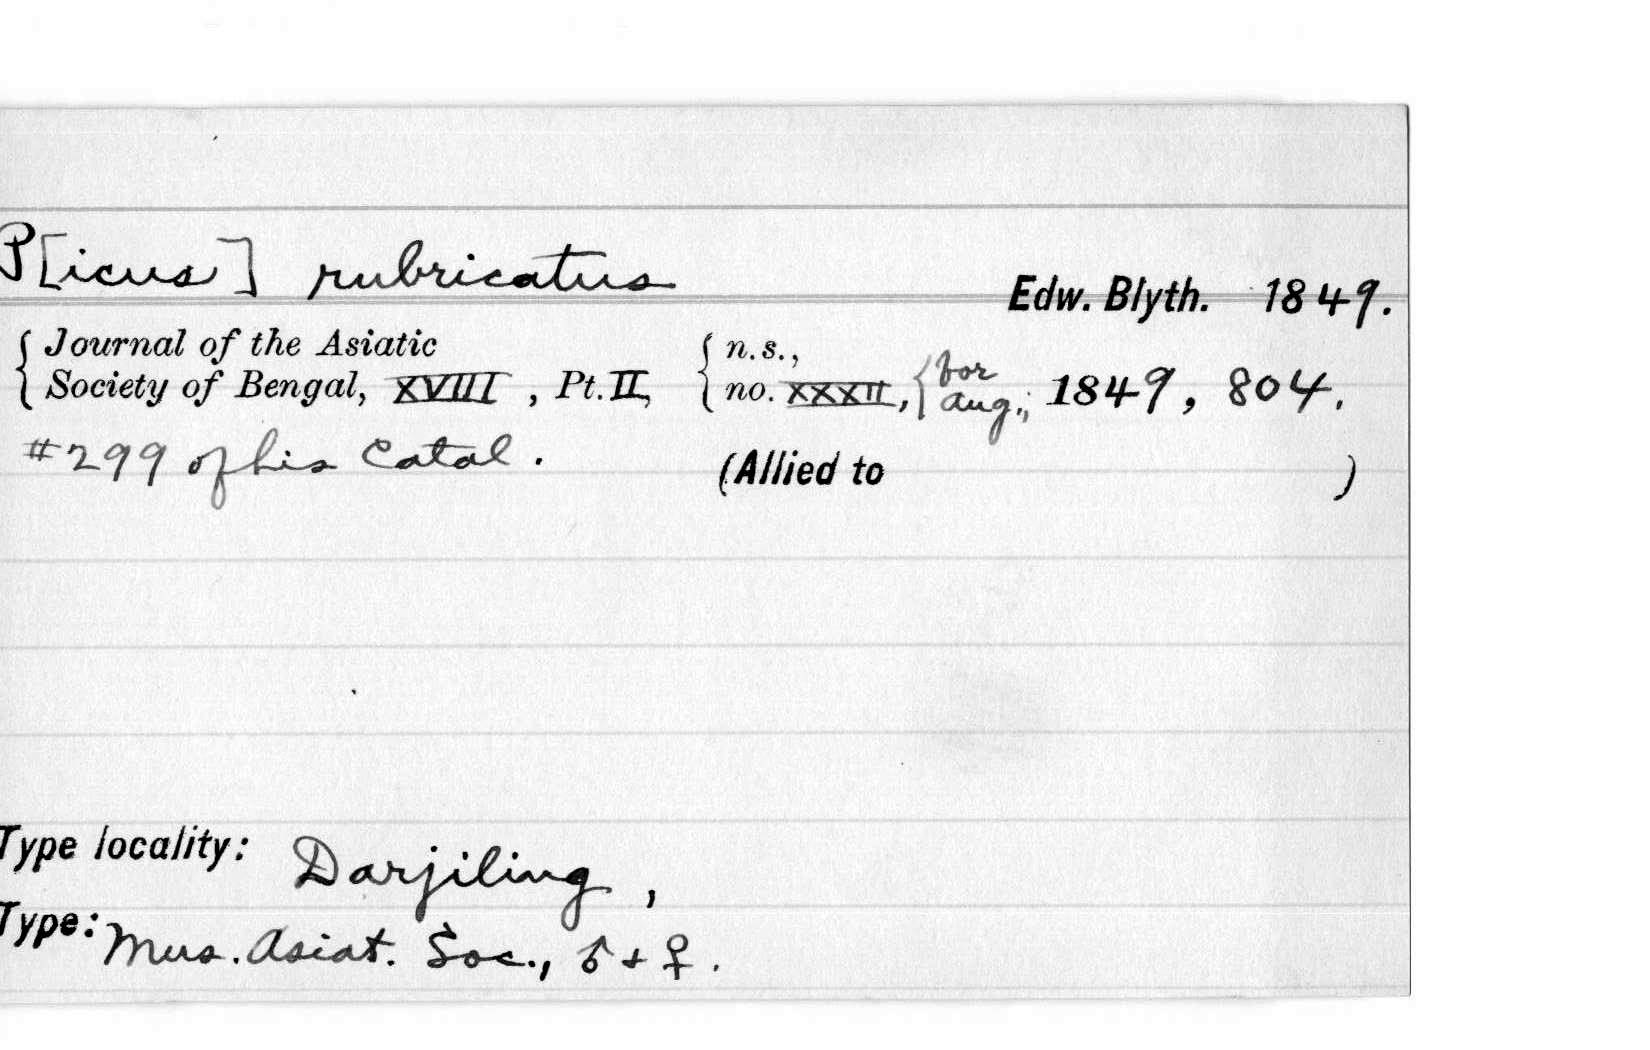 P[icus] rubricatus Edw. Blyth. 1849.
{ Journal of the Asiatic { n.s., { for
Society of Bengal, XVIII , Pt. II, no. XXXII, Aug., 1849, 804.
#299 of his Catal. (Allied to )
Type locality: Darjiling,
Type: Mus. Asiat. Soc., ♂ + ♀.